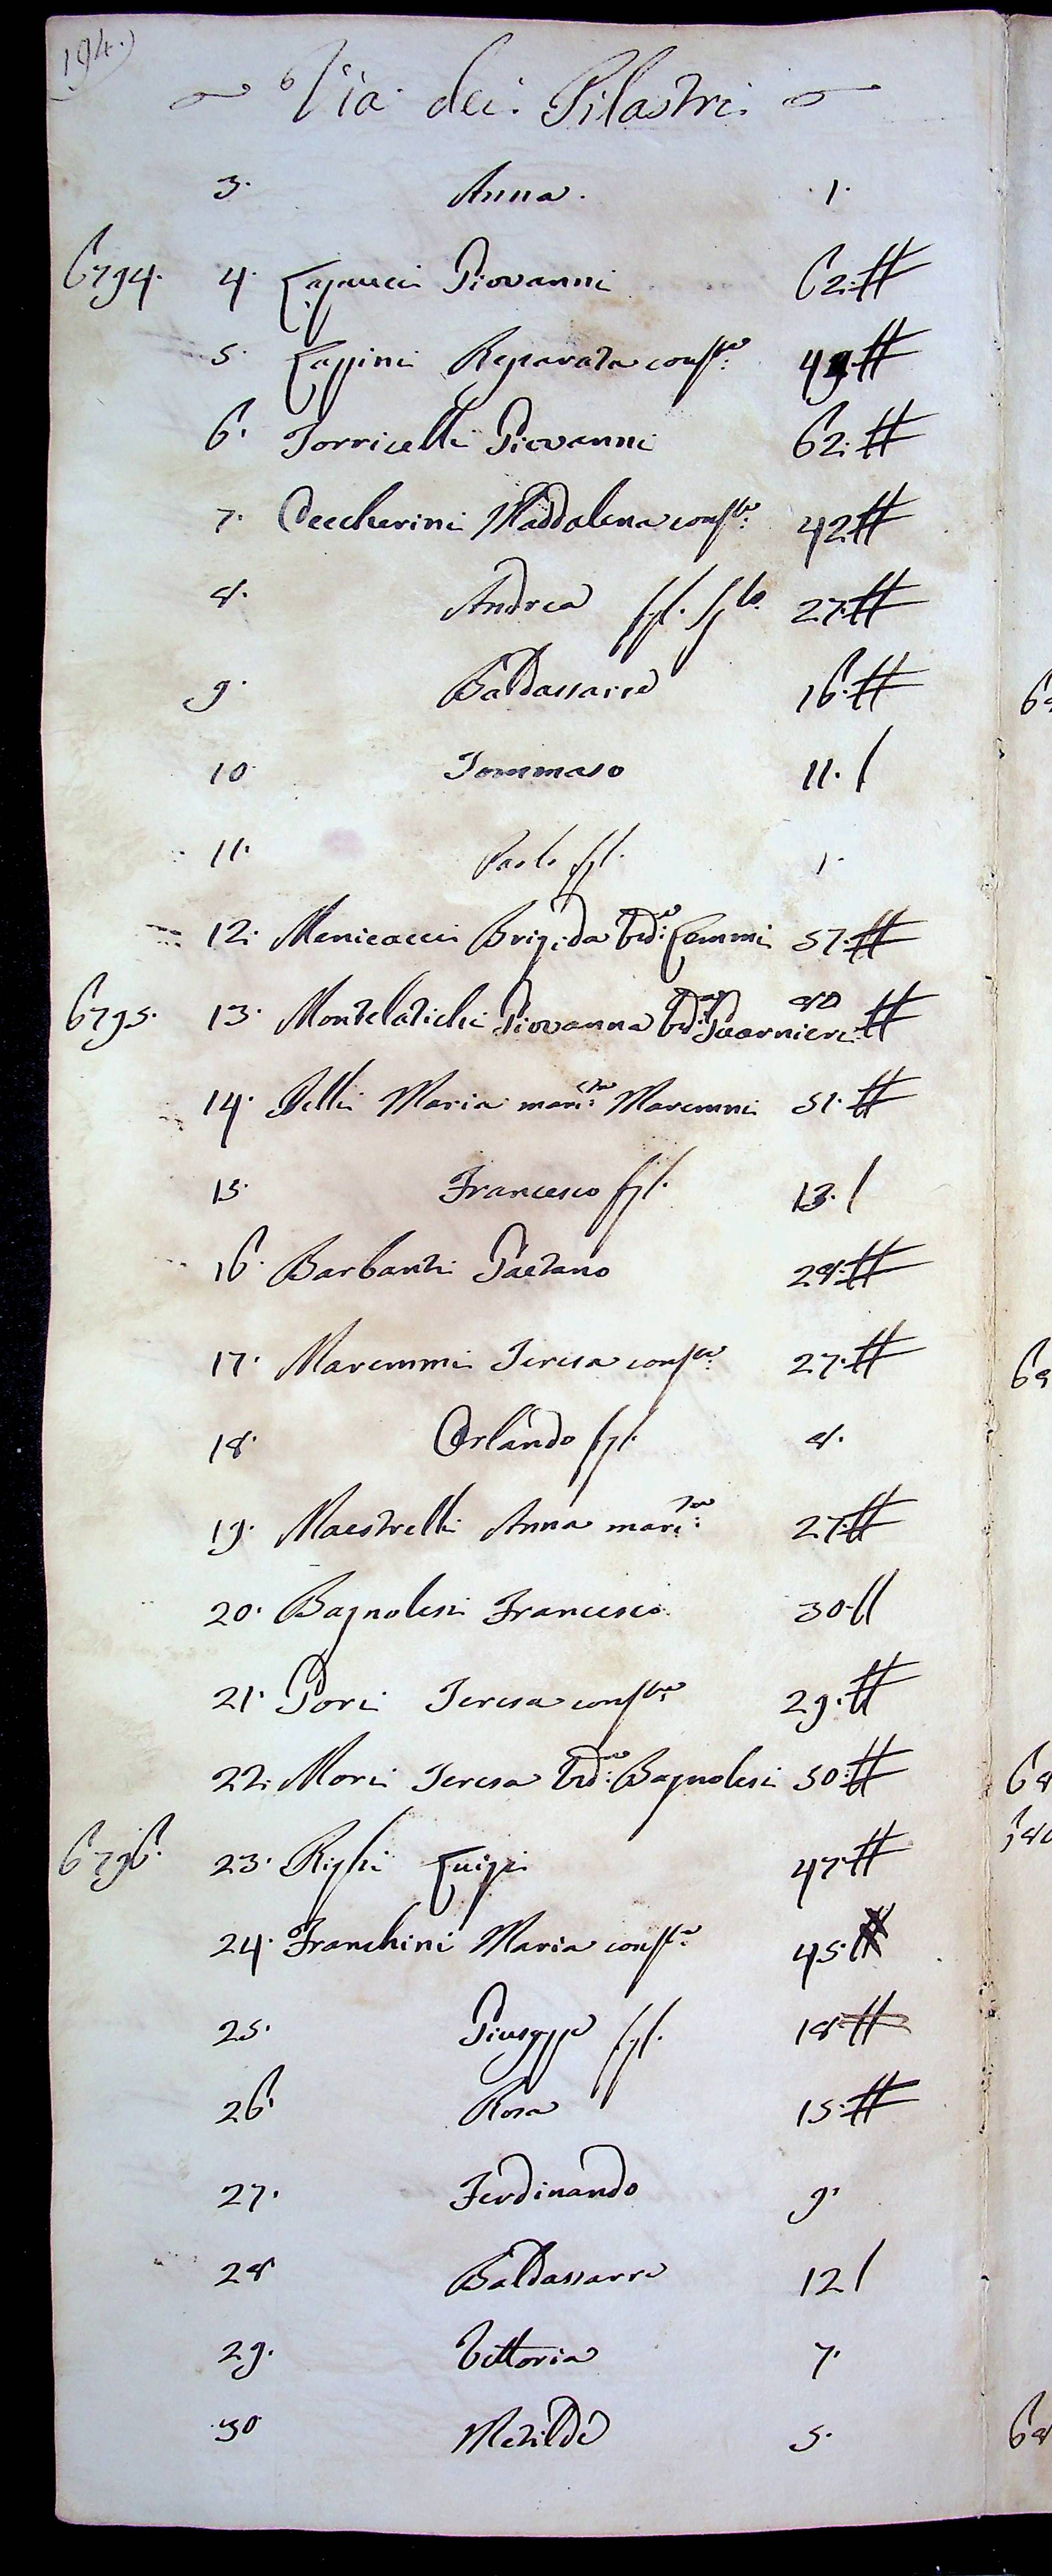 194.)
Via dei Pilastri
3. Anna. 1.
6794. 4. Capaucci Giovanni 62.#
5. Lappini Reparata conste: 49.#
6. Torricelli Giovanni 62.#
7. Ceccherini Maddalena conste: 42#
8. Andrea fgl. 27.#
9. Baldassarre 16.#
10. Tommaso 11./
11. Paolo fgl. 1.
12. Menicacci Brigida Vedа: Lemmi 57.#
6795. 13. Montelatichi Giovanna Vedа: Guarnieri 80 #
14. Pelli Maria marita: Maremmi 51.#
15. Francesco fgl. 13./
16. Barbanti Gaetano 28.#
17. Maremmi Teresa conste: 27.#
18. Orlando fgl. 8.
19. Maestrelli Anna marita: 27#
20. Bagnolesi Francesco 30.//
21. Gori Teresa conste: 29.#
22. Mori Teresa Veda: Bagnolesi 50.#
6796. 23. Righi Luigi 47#
24. Franchini Maria conste: 45.#
25. Giuseppe fgl. 18.#
26. Rosa 15.#
27. Ferdinando 9.
28 Baldassarre 12/
29. Vittoria 7.
30 Metilde 5.